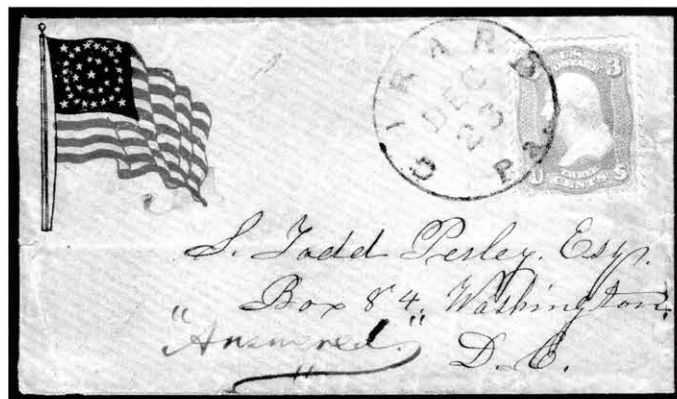 GIRARD
DEC
23
Pa.
U.S.
3
3
U S
THREE
CENTS
S. Todd Perley. Esq.
Box 84. Washington.
"Answered." D. C.